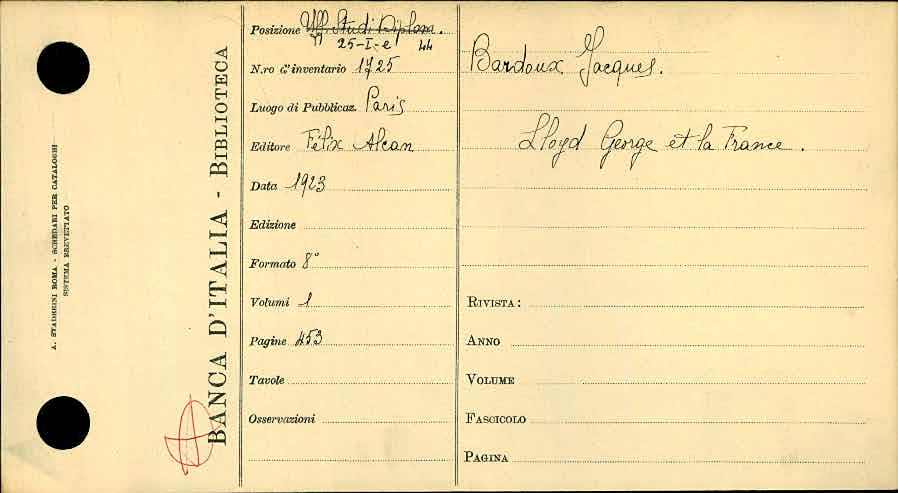 A. STADERINI ROMA - SCHEDARI PER CATALOGHI
SISTEMA BREVETTATO
BANCA D'ITALIA - BIBLIOTECA
Posizione Uff. Studi Diplom.
25-I-e 44
N.ro d'inventario 1725
Luogo di Pubblicaz. Paris
Editore Félix Alcan
Data 1923
Edizione
Formato 8°
Volumi 1
Pagine 453
Tavole
Osservazioni
Bardoux Jacques.
Lloyd George et la France.
RIVISTA:
ANNO
VOLUME
FASCICOLO
PAGINA